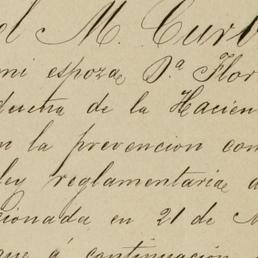 ol M. Curb
mi espoza, D.ª Flor
ducha de la Hacien
n la prevencion con
ley reglamentaria d
cionada en 21 de M
que á continuación